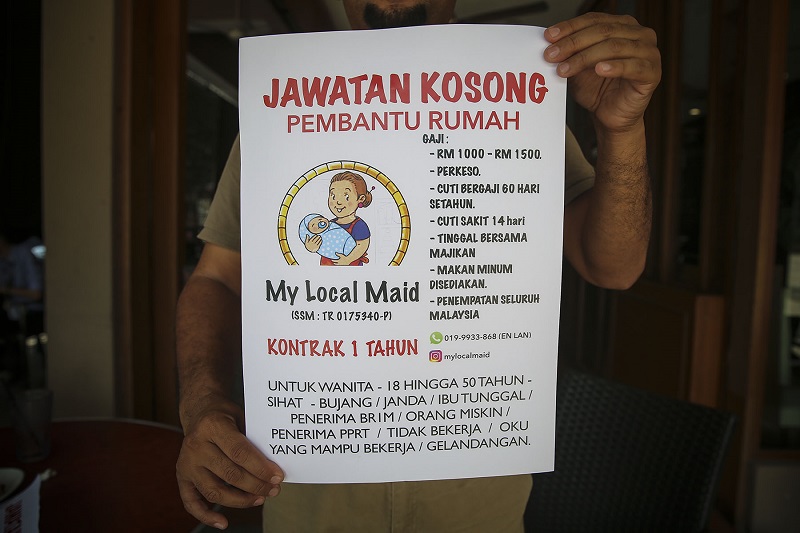 JAWATAN KOSONG
PEMBANTU RUMAH
GAJI :
- RM 1000 - RM 1500.
- PERKESO.
- CUTI BERGAJI 60 HARI
SETAHUN.
- CUTI SAKIT 14 hari
- TINGGAL BERSAMA
MAJIKAN
- MAKAN MINUM
DISEDIAKAN.
- PENEMPATAN SELURUH
MALAYSIA
My Local Maid
(SSM : TR 0175340-P)
KONTRAK 1 TAHUN
019-9933-868 (EN LAN)
mylocalmaid
UNTUK WANITA - 18 HINGGA 50 TAHUN -
SIHAT - BUJANG / JANDA / IBU TUNGGAL /
PENERIMA BRIM / ORANG MISKIN /
PENERIMA PPRT / TIDAK BEKERJA / OKU
YANG MAMPU BEKERJA / GELANDANGAN.